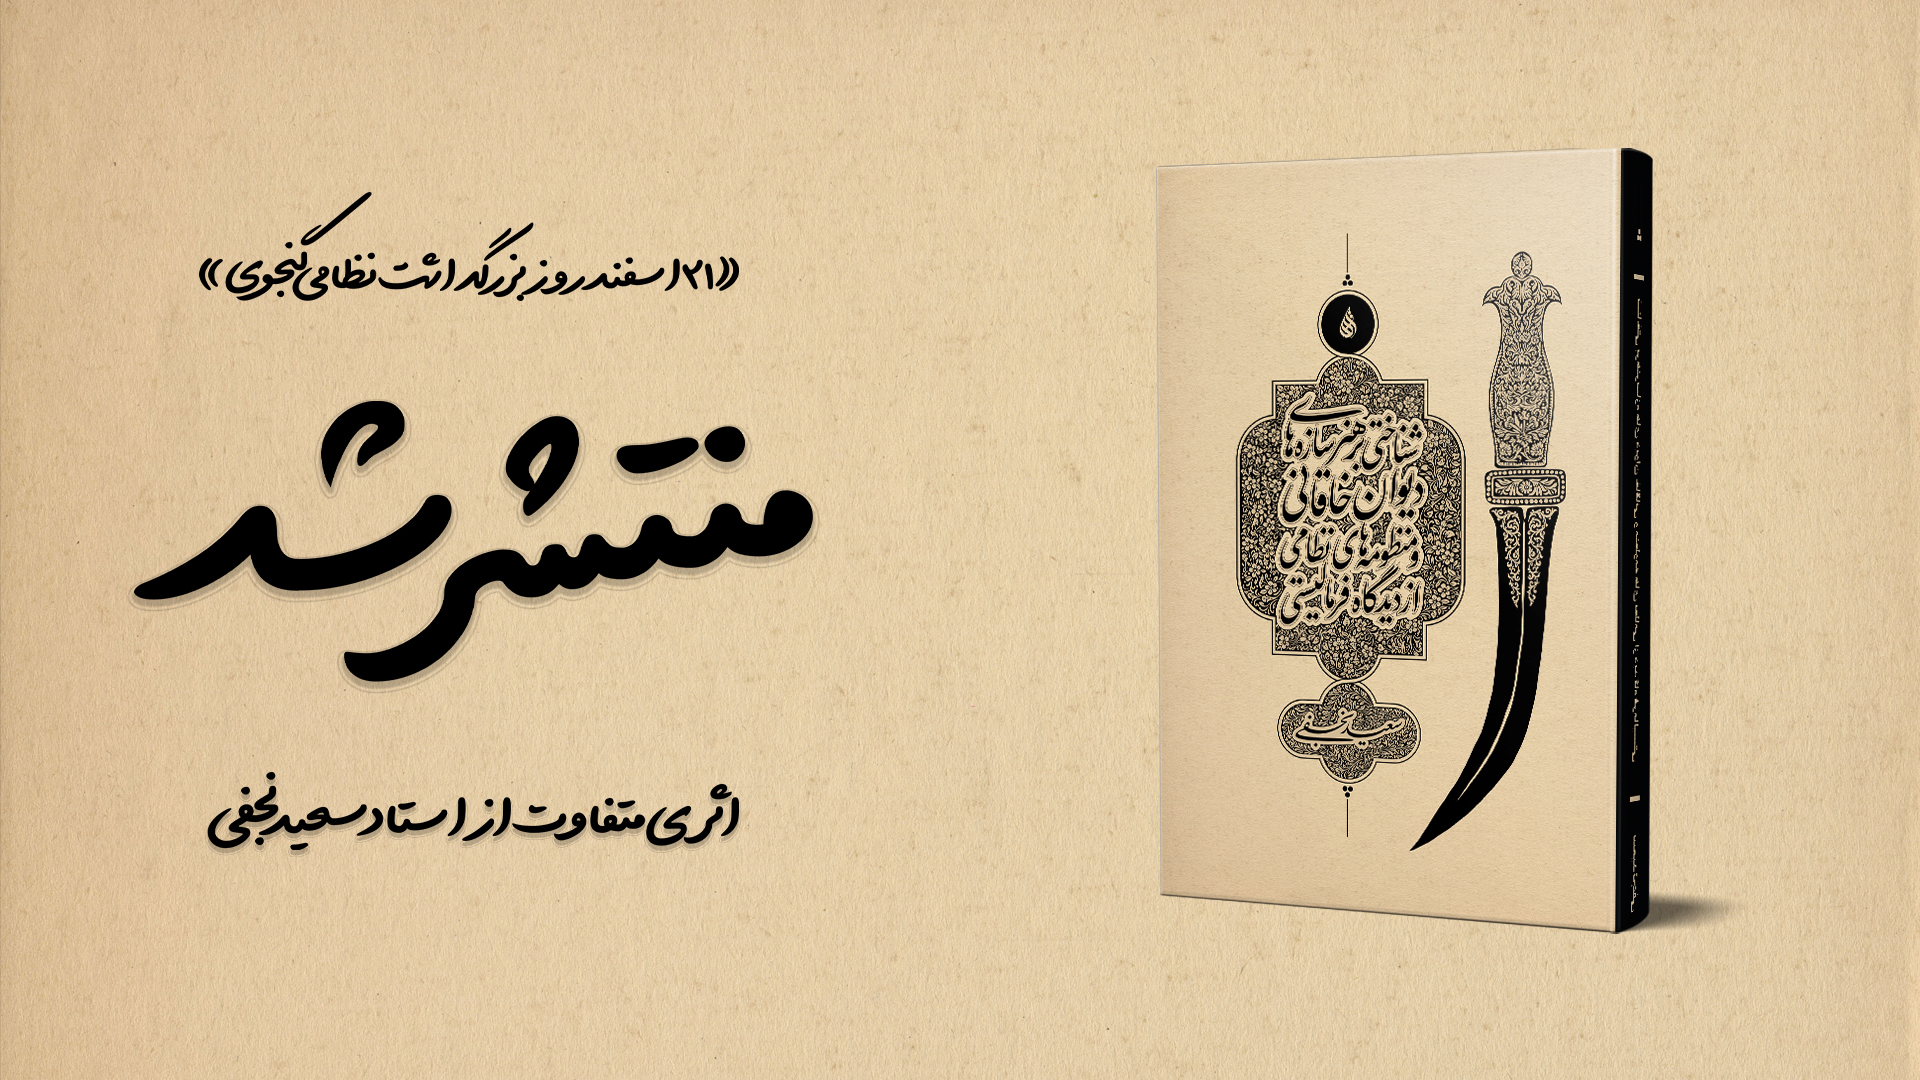 «۲۱ اسفند روز بزرگداشت نظامی گنجوی»
منتشر شد
اثری متفاوت از استاد سعید نجفی
شناختی بر هنرسازه‌های
دیوان خاقانی
و منظومه‌های نظامی
از دیدگاه فرمالیستی
سعید نجفی